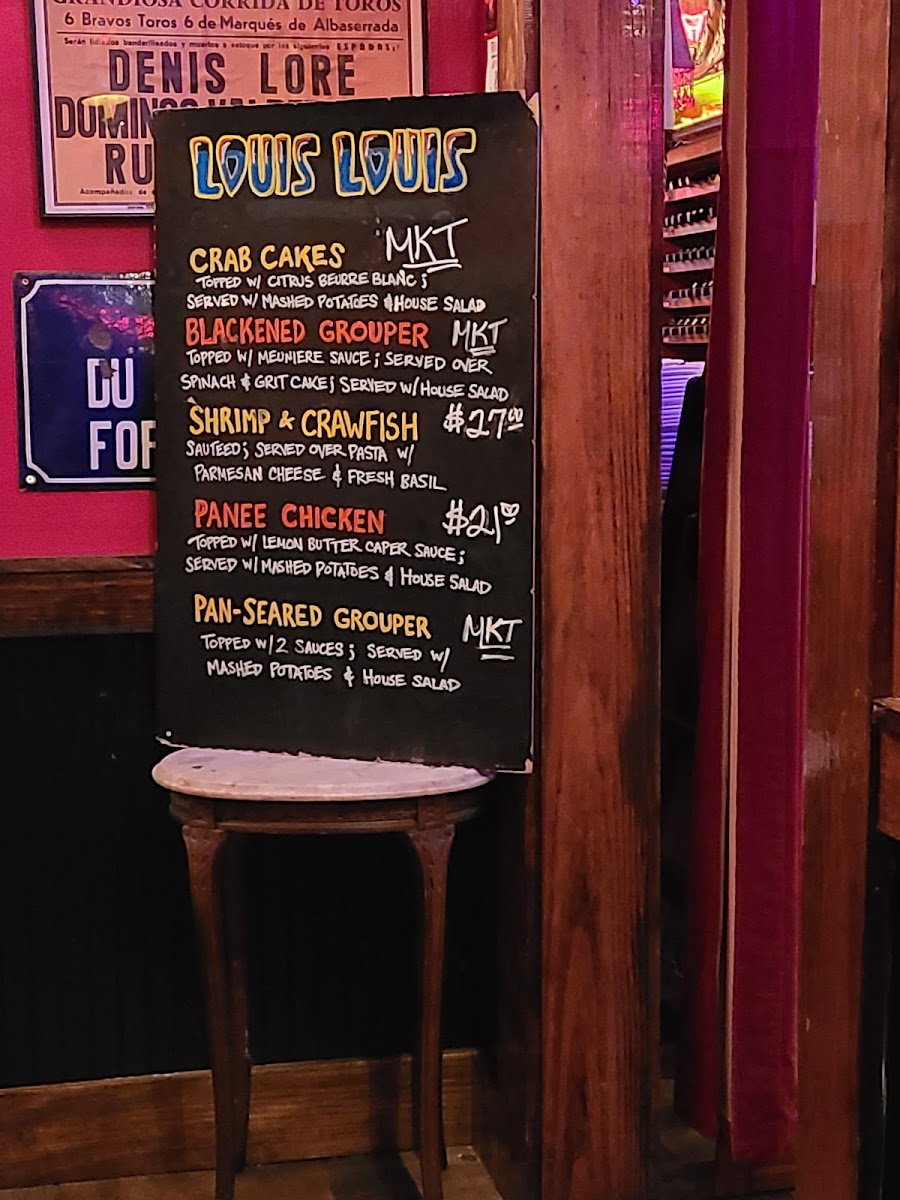 GRANDIOSA CORRIDA DE TOROS
6 Bravos Toros 6 de Marqués de Albaserrada
Serán lidiados banderilleados y muertos a estoque por los siguientes ESPADAS:
DENIS LORE
RU
Acompañados de
DU
FOR
LOUIS LOUIS
CRAB CAKES MKT
TOPPED W/ CITRUS BEURRE BLANC;
SERVED W/ MASHED POTATOES & HOUSE SALAD
BLACKENED GROUPER MKT
TOPPED W/ MEUNIERE SAUCE; SERVED OVER
SPINACH & GRIT CAKE; SERVED W/ HOUSE SALAD
SHRIMP & CRAWFISH $27.00
SAUTEED; SERVED OVER PASTA W/
PARMESAN CHEESE & FRESH BASIL
PANEE CHICKEN $21.00
TOPPED W/ LEMON BUTTER CAPER SAUCE;
SERVED W/ MASHED POTATOES & HOUSE SALAD
PAN-SEARED GROUPER MKT
TOPPED W/ 2 SAUCES; SERVED W/
MASHED POTATOES & HOUSE SALAD